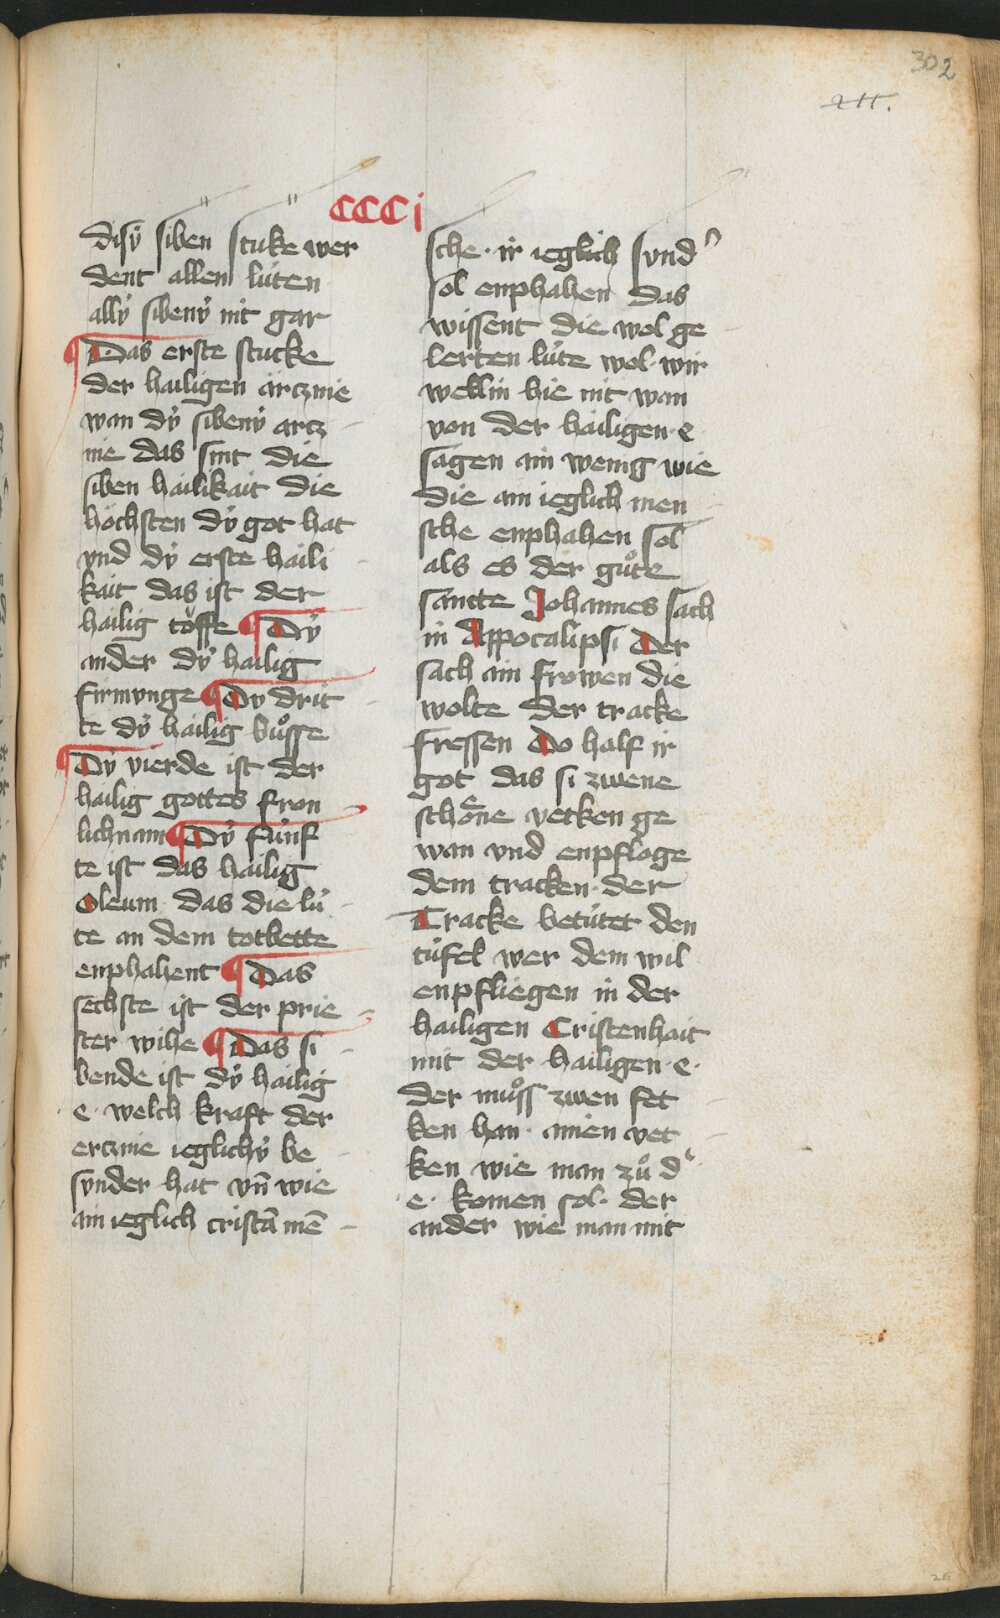 302
211.
CCCj
disÿ siben stuke wer
dent allen lúten
allÿ sibenÿ nit gar
¶ Das erste stucke
der hailigen árcznie
wan dÿ sibenÿ artz
nie das sint die
siben hailikait die
höchsten dÿ got hat
vnd dÿ erste haili
kait das ist der
hailig töffe ¶ Dÿ
ander dÿ hailig
firmvnge ¶ Dÿ drit
te dÿ hailig bůsse
¶ Dÿ vierde ist der
hailig gottes fron
lichnam ¶ Dÿ fúnf
te ist das hailig
Oleum das die lú
te an dem totbette
enphahent ¶ Das
sechste ist der prie
ster wihe ¶ Das si
bende ist dÿ hailig
e · welch kraft der
ercznie ieglichÿ be
svnder hat vn̄ wie
ain ieglich cristā mē
sche · ir ieglich svnd᾿
sol enphahen das
wissent die wol ge
lerten lúte wol · wir
wellin hie nit wan
von der hailigen · e
sagen ain wenig wie
die ain ieglich men
sche enphahen sol
als es der gůte
sancte Johannes sach
in Appocalipsi Der
sach ain frowen die
wolte der tracke
fressen Do half ir
got das si zwene
schoͤne vetken ge
wan vnd enpfloge
dem tracken · der
Tracke betútet den
túfel wer dem wil
enpfliegen in der
hailigen Cristenhait
mit der hailigen · e ·
der můss zwen fet
ken han · ainen vet
ken wie man zů d᾿
· e · komen sol · der
ander wie man mit